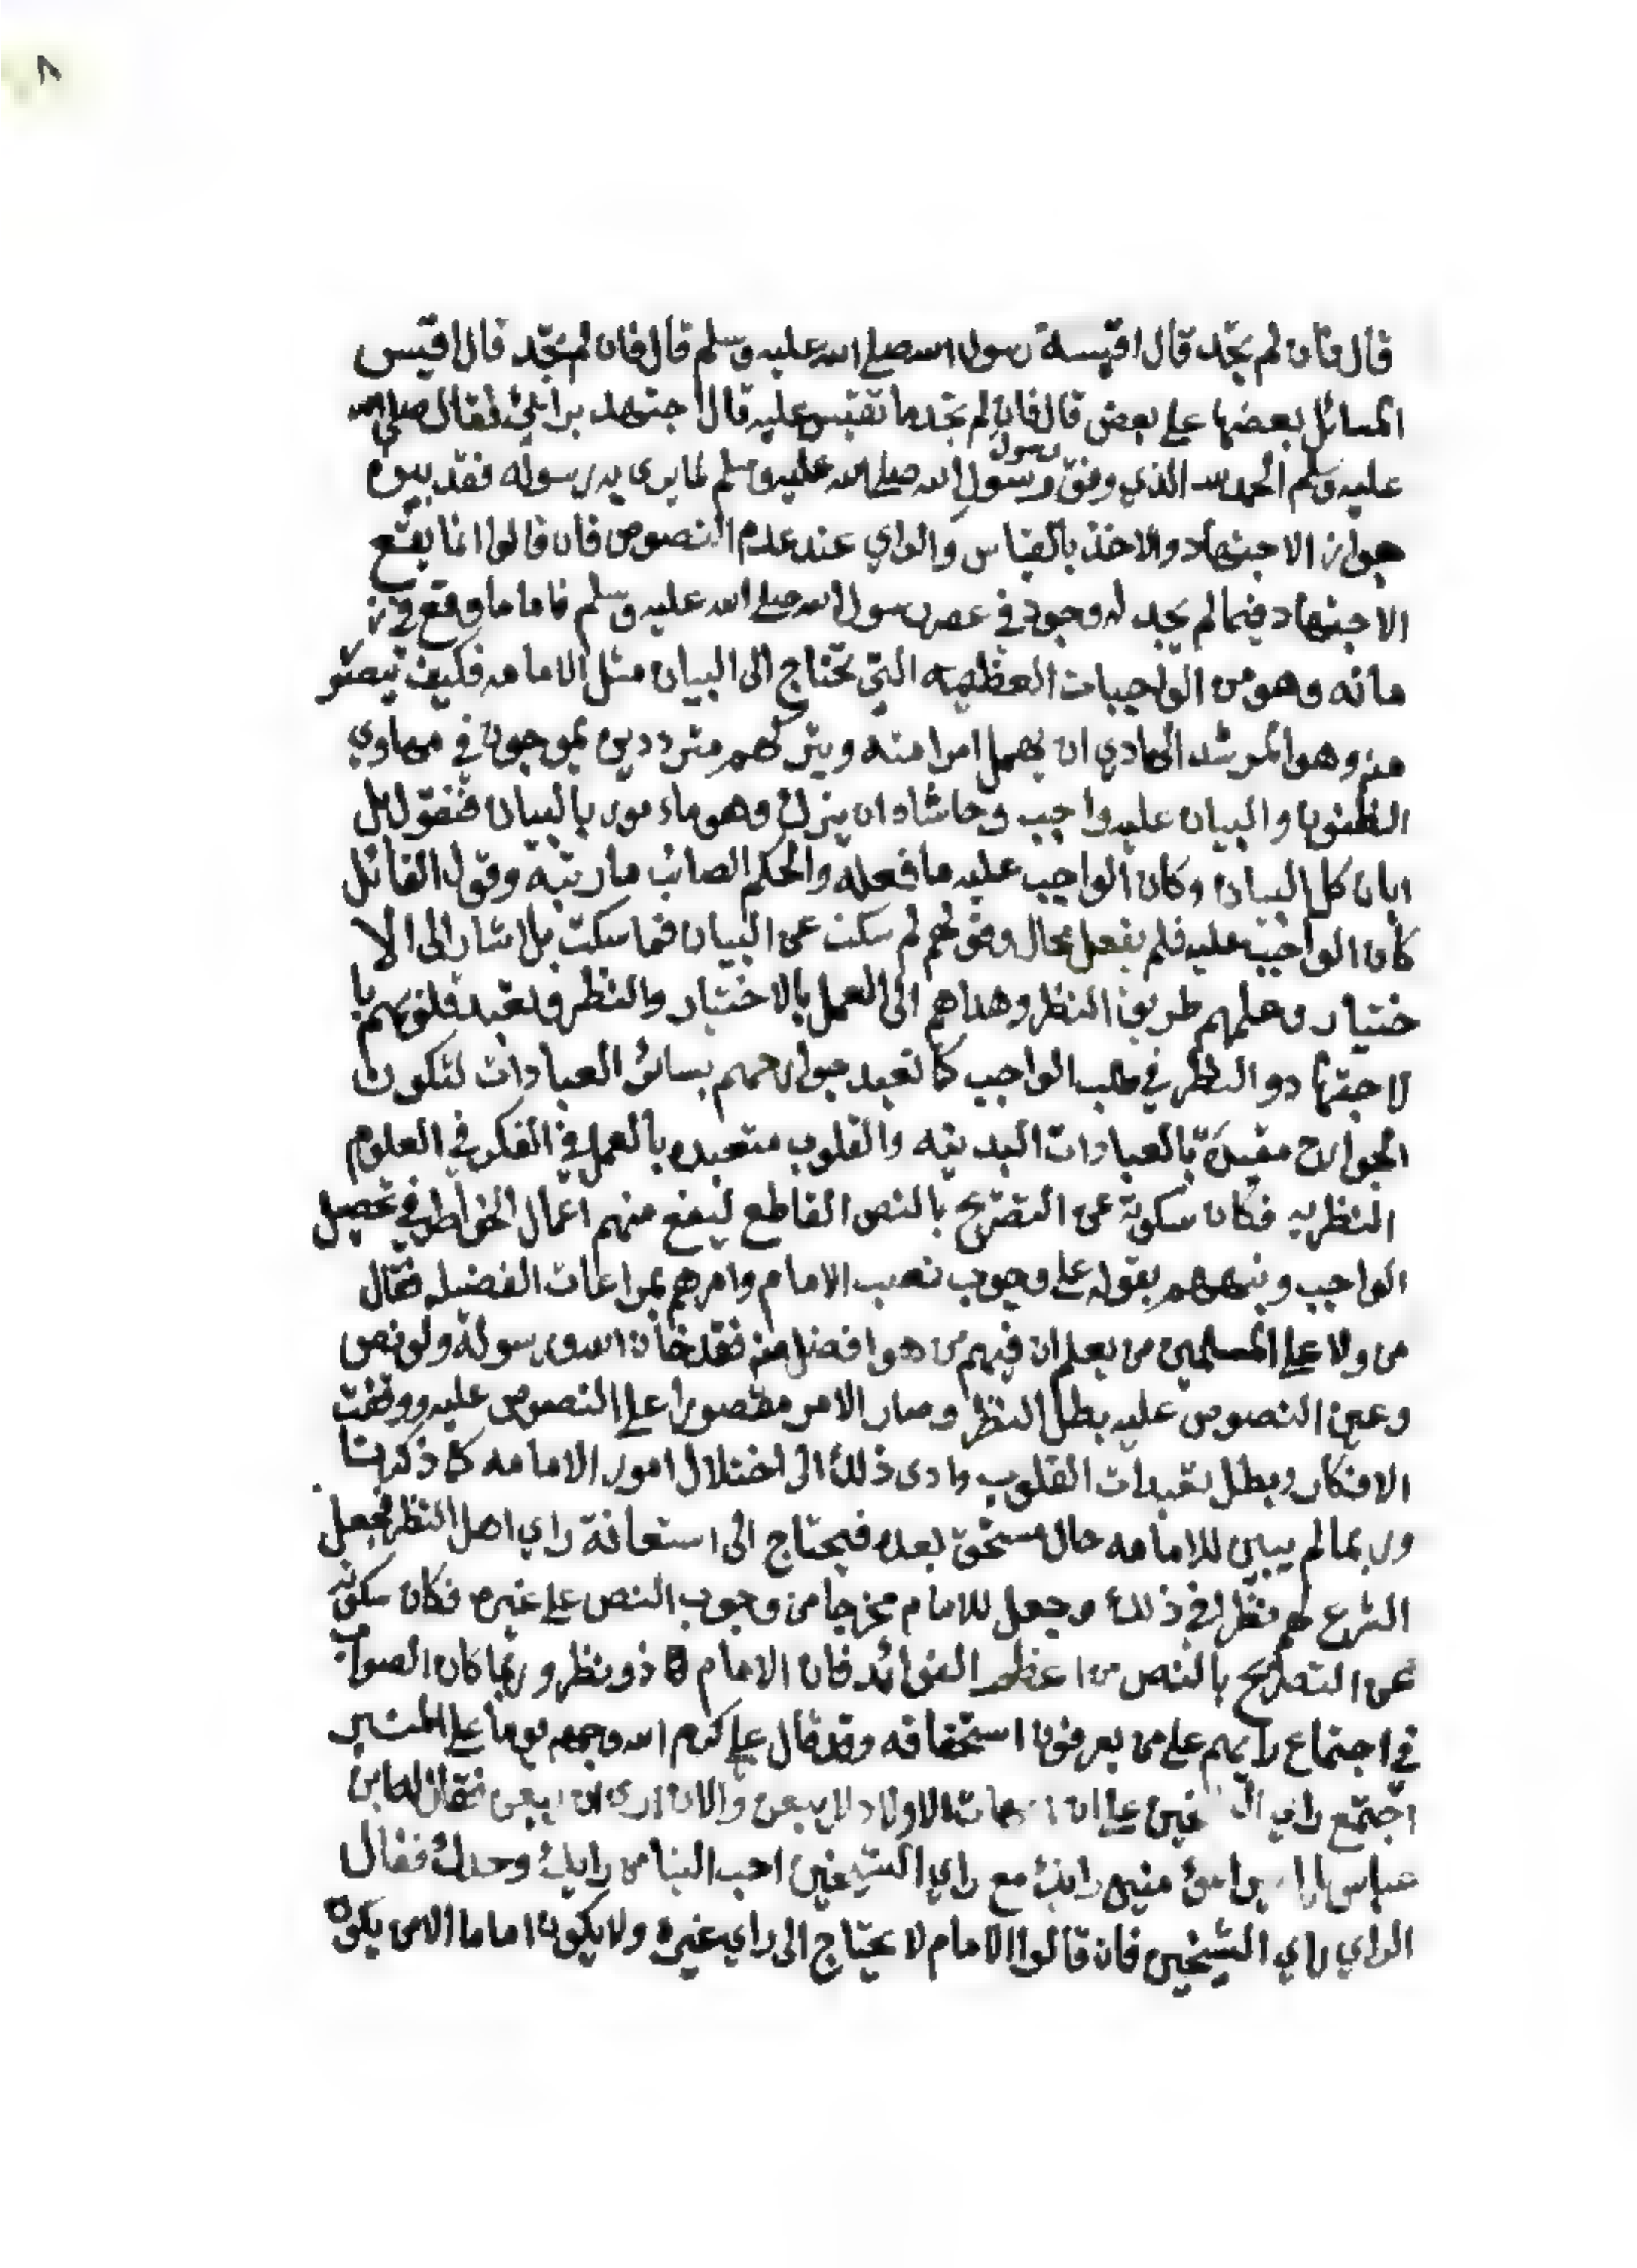 ٨
قال فان لم تجد قال اقيسة رسول الله صلى الله عليه وسلم قال فان لم تجد قال اقيس
المسائل بعضها على بعض قال فان لم تجد ما تقيس عليه قال اجتهد برايي فقال صلى الله
عليه وسلم الحمد لله الذي وفق رسول رسول الله صلى الله عليه وسلم لما يرى به رسوله فقد بين
جواز الاجتهاد والاخذ بالقياس والراي عند عدم النصوص فان قالوا انما يقع
الاجتهاد فيما لم يجد له وجود في عصر رسول الله صلى الله عليه وسلم فاما ما وقع في ز
مانه وهو من الواجبات العظيمه التي تحتاج الى البيان مثل الامامه فكيف يتصور
منه وهو المرشد الهادي ان يهمل امرا منه ويتركهم مترددين يموجون في مهاوي
الظنون والبيان عليه واجب وحاشاه ان يترك وهو ماءمور بالبيان فنقول بل
ابان كل البيان وكان الواجب عليه ما فعله والحكم الصائب ما رتبه وقول القائل
كان الواجب عليه فلم يفعل محال وقولهم لم سكت عن البيان فما سكت بل اشار الى الا
ختيار وعلمهم طريق النظر وهداهم الى العمل بالاختيار والنظر وتعبد قلوبهم با
لاجتها دو النظر في طلب الواجب كما تعبد جوارحهم بسائر العبادات لتكون
الجوارح مقيدة بالعبادات البدنيه والقلوب متعبده بالعمل في الفكر في العلوم
النظريه فكان سكوته عن التصريح بالنص القاطع ليقع منهم اعمال الخواطر في تحصيل
الواجب ونبههم بقوله على وجوب نصب الامام وامرهم بمراعات الفضيله فقال
من ولا على المسلمين من يعلم ان فيهم من هو افضل منه فقد خان الله ورسوله ولو نص
وعين النصوص عليه بطل النظر وصار الامر مقصورا على النصوص عليه ووقفت
الافكار وبطل تعبدات القلوب وادى ذلك الى اختلال امور الامامه كما ذكرنا
وربما لم يبين للامامه حال مستحق بعده فيحتاج الى استعانة راي اهل النظر فجعل
الشرع لهم نظرا في ذلك وجعل للامام مخرجا من وجوب النص على غيره فكان سكوته
عن التصريح بالنص من اعظم الفوائد فان الامام ذو نظر وربما كان الصواب
في اجتماع رايهم على من يعرفون استحقاقه وقد قال علي كرم الله وجهه يوما على المنبر
اجتمع راي على ان الاولاد لا يبعن والان ارى ان يبعن فقال له ابن
عباس رايك مع راي الشيخين احب الينا من رايك وحدك فقال
الراي راي الشيخين فان قالوا الامام لا يحتاج الى راي غيره ولا يكون اماما الا من يكون